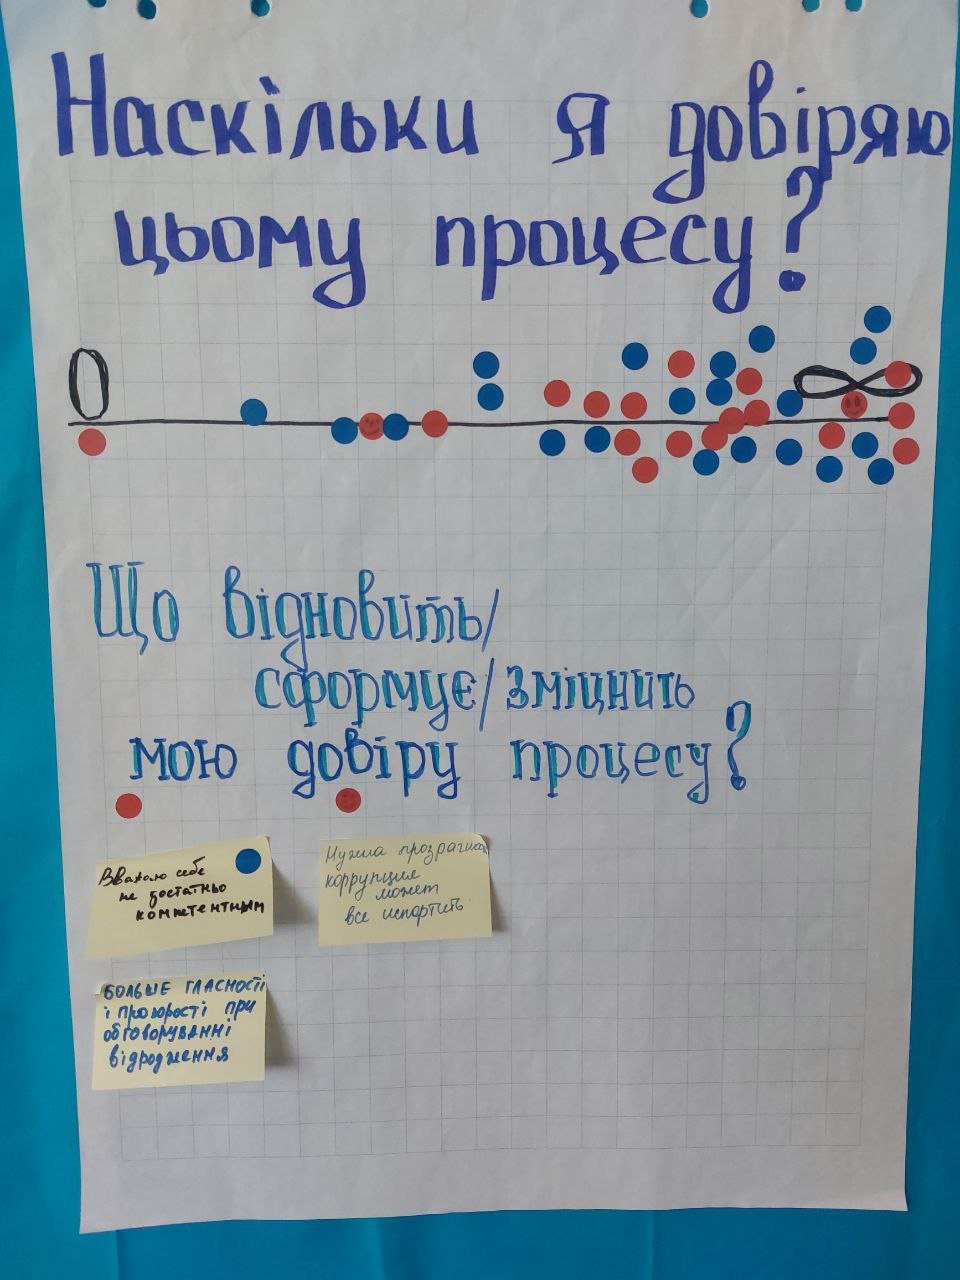 Наскільки я довіряю
цьому процесу?
0 ∞
Що відновить/
сформує/зміцнить
мою довіру процесу?
Вважаю себе
не достатньо
компетентным
Нужна
коррупция
может
все испортить
БОЛЬШЕ ГЛАСНОСТІ
і прозорості при
обговорюванні
відродження